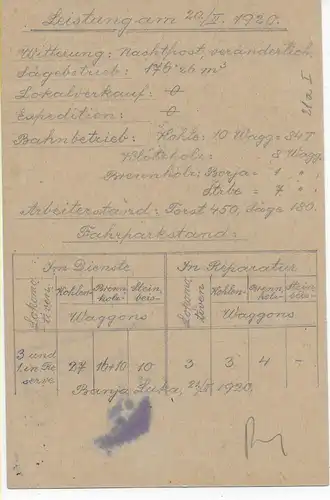 Leistung am 20./II. 1920.
Witterung: Nachtfrost, veränderlich.
Sägebetrieb: 175 cb m³
Lokalverkauf: 0
Expedition: 0
Bahnbetrieb: Kohle: 10 Wagg = 84 T
Klötzholz: 8 Wagg.
Brennholz: Borja = 1 "
Strbc = 7 "
Arbeiterstand: Forst 450, Säge 180.
Fahrparkstand:
Im Dienste In Reparatur
Lokomotiven Kohlen- Brennholz- Steinbeis- Lokomotiven Kohlen- Brennholz- Steinbeis-
Waggons Waggons
3 und 1 in Reserve 27 16+10 10 3 3 4 -
Banja Luka, 21/II. 1920.